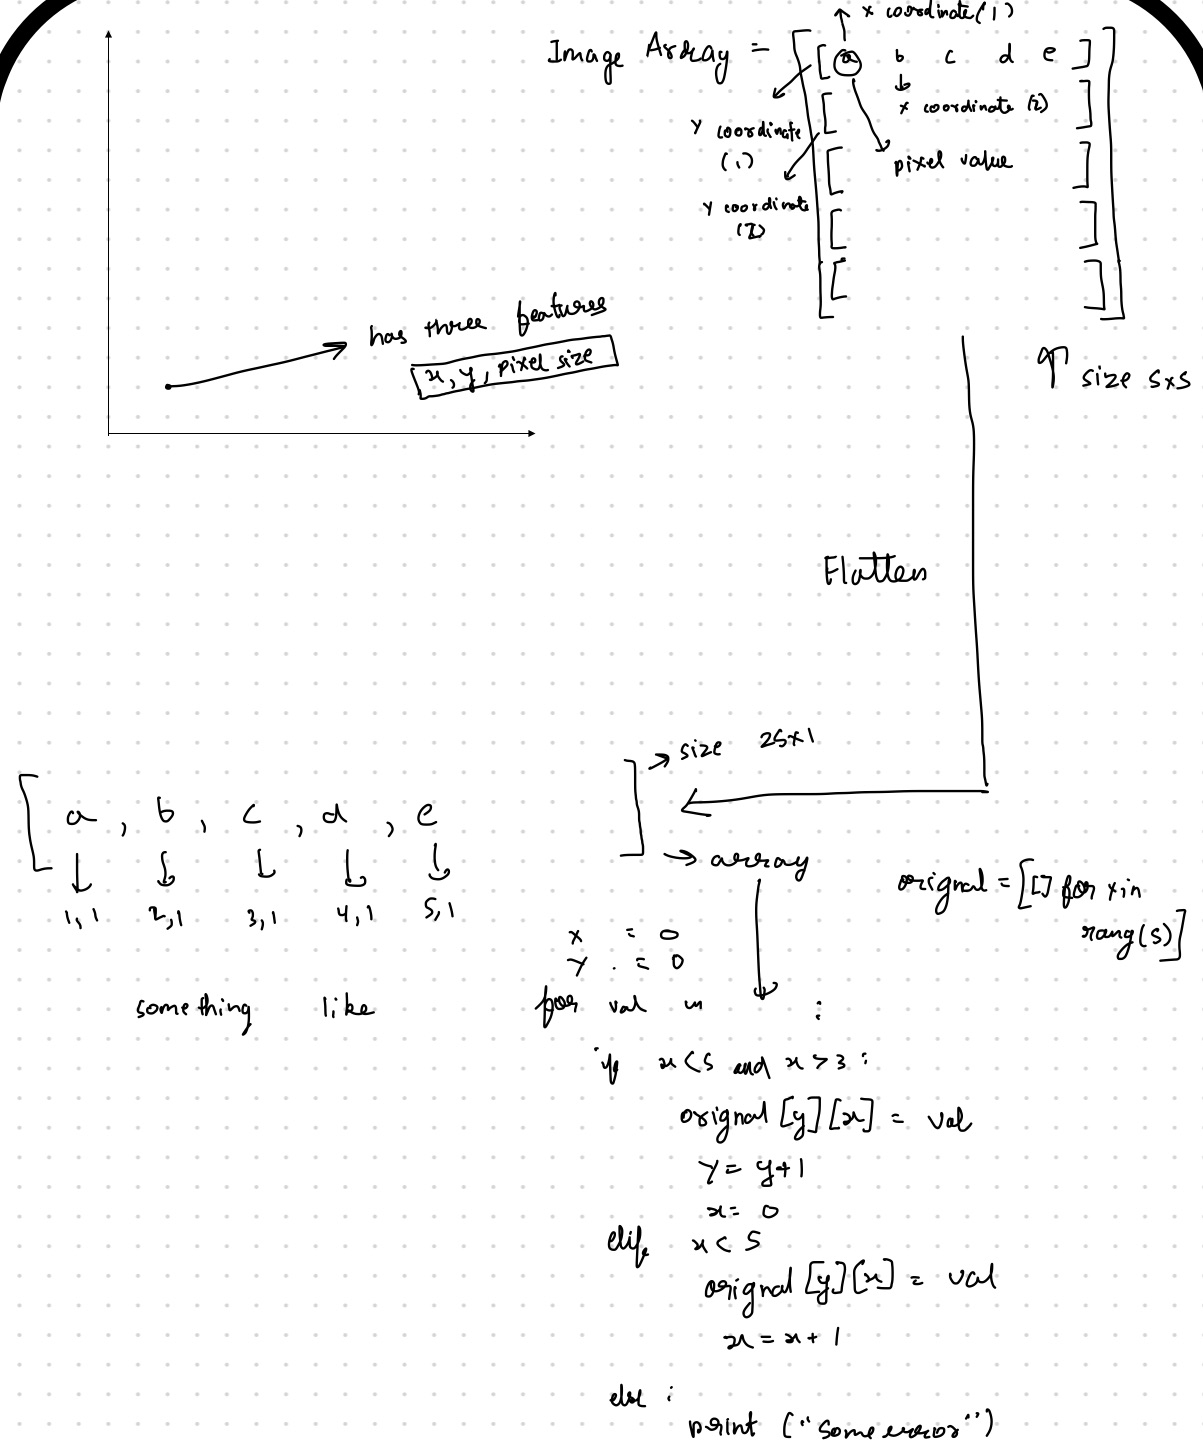 x coordinate (1)
Image Array = [ [ a b c d e ] ]
x coordinate (2)
y coordinate
(1)
pixel value
y coordinate
(2)
has three features
x, y, pixel size
size 5x5
Flatten
size 25x1
[ a , b , c , d , e ]
array
1,1 2,1 3,1 4,1 5,1
orignal = [[] for x in
rang(5)]
x = 0
y = 0
something like
for val in :
if x < 5 and x > 3 :
orignal [y][x] = val
y = y+1
x = 0
elif x < 5
orignal [y][x] = val
x = x + 1
else :
print ("some error")